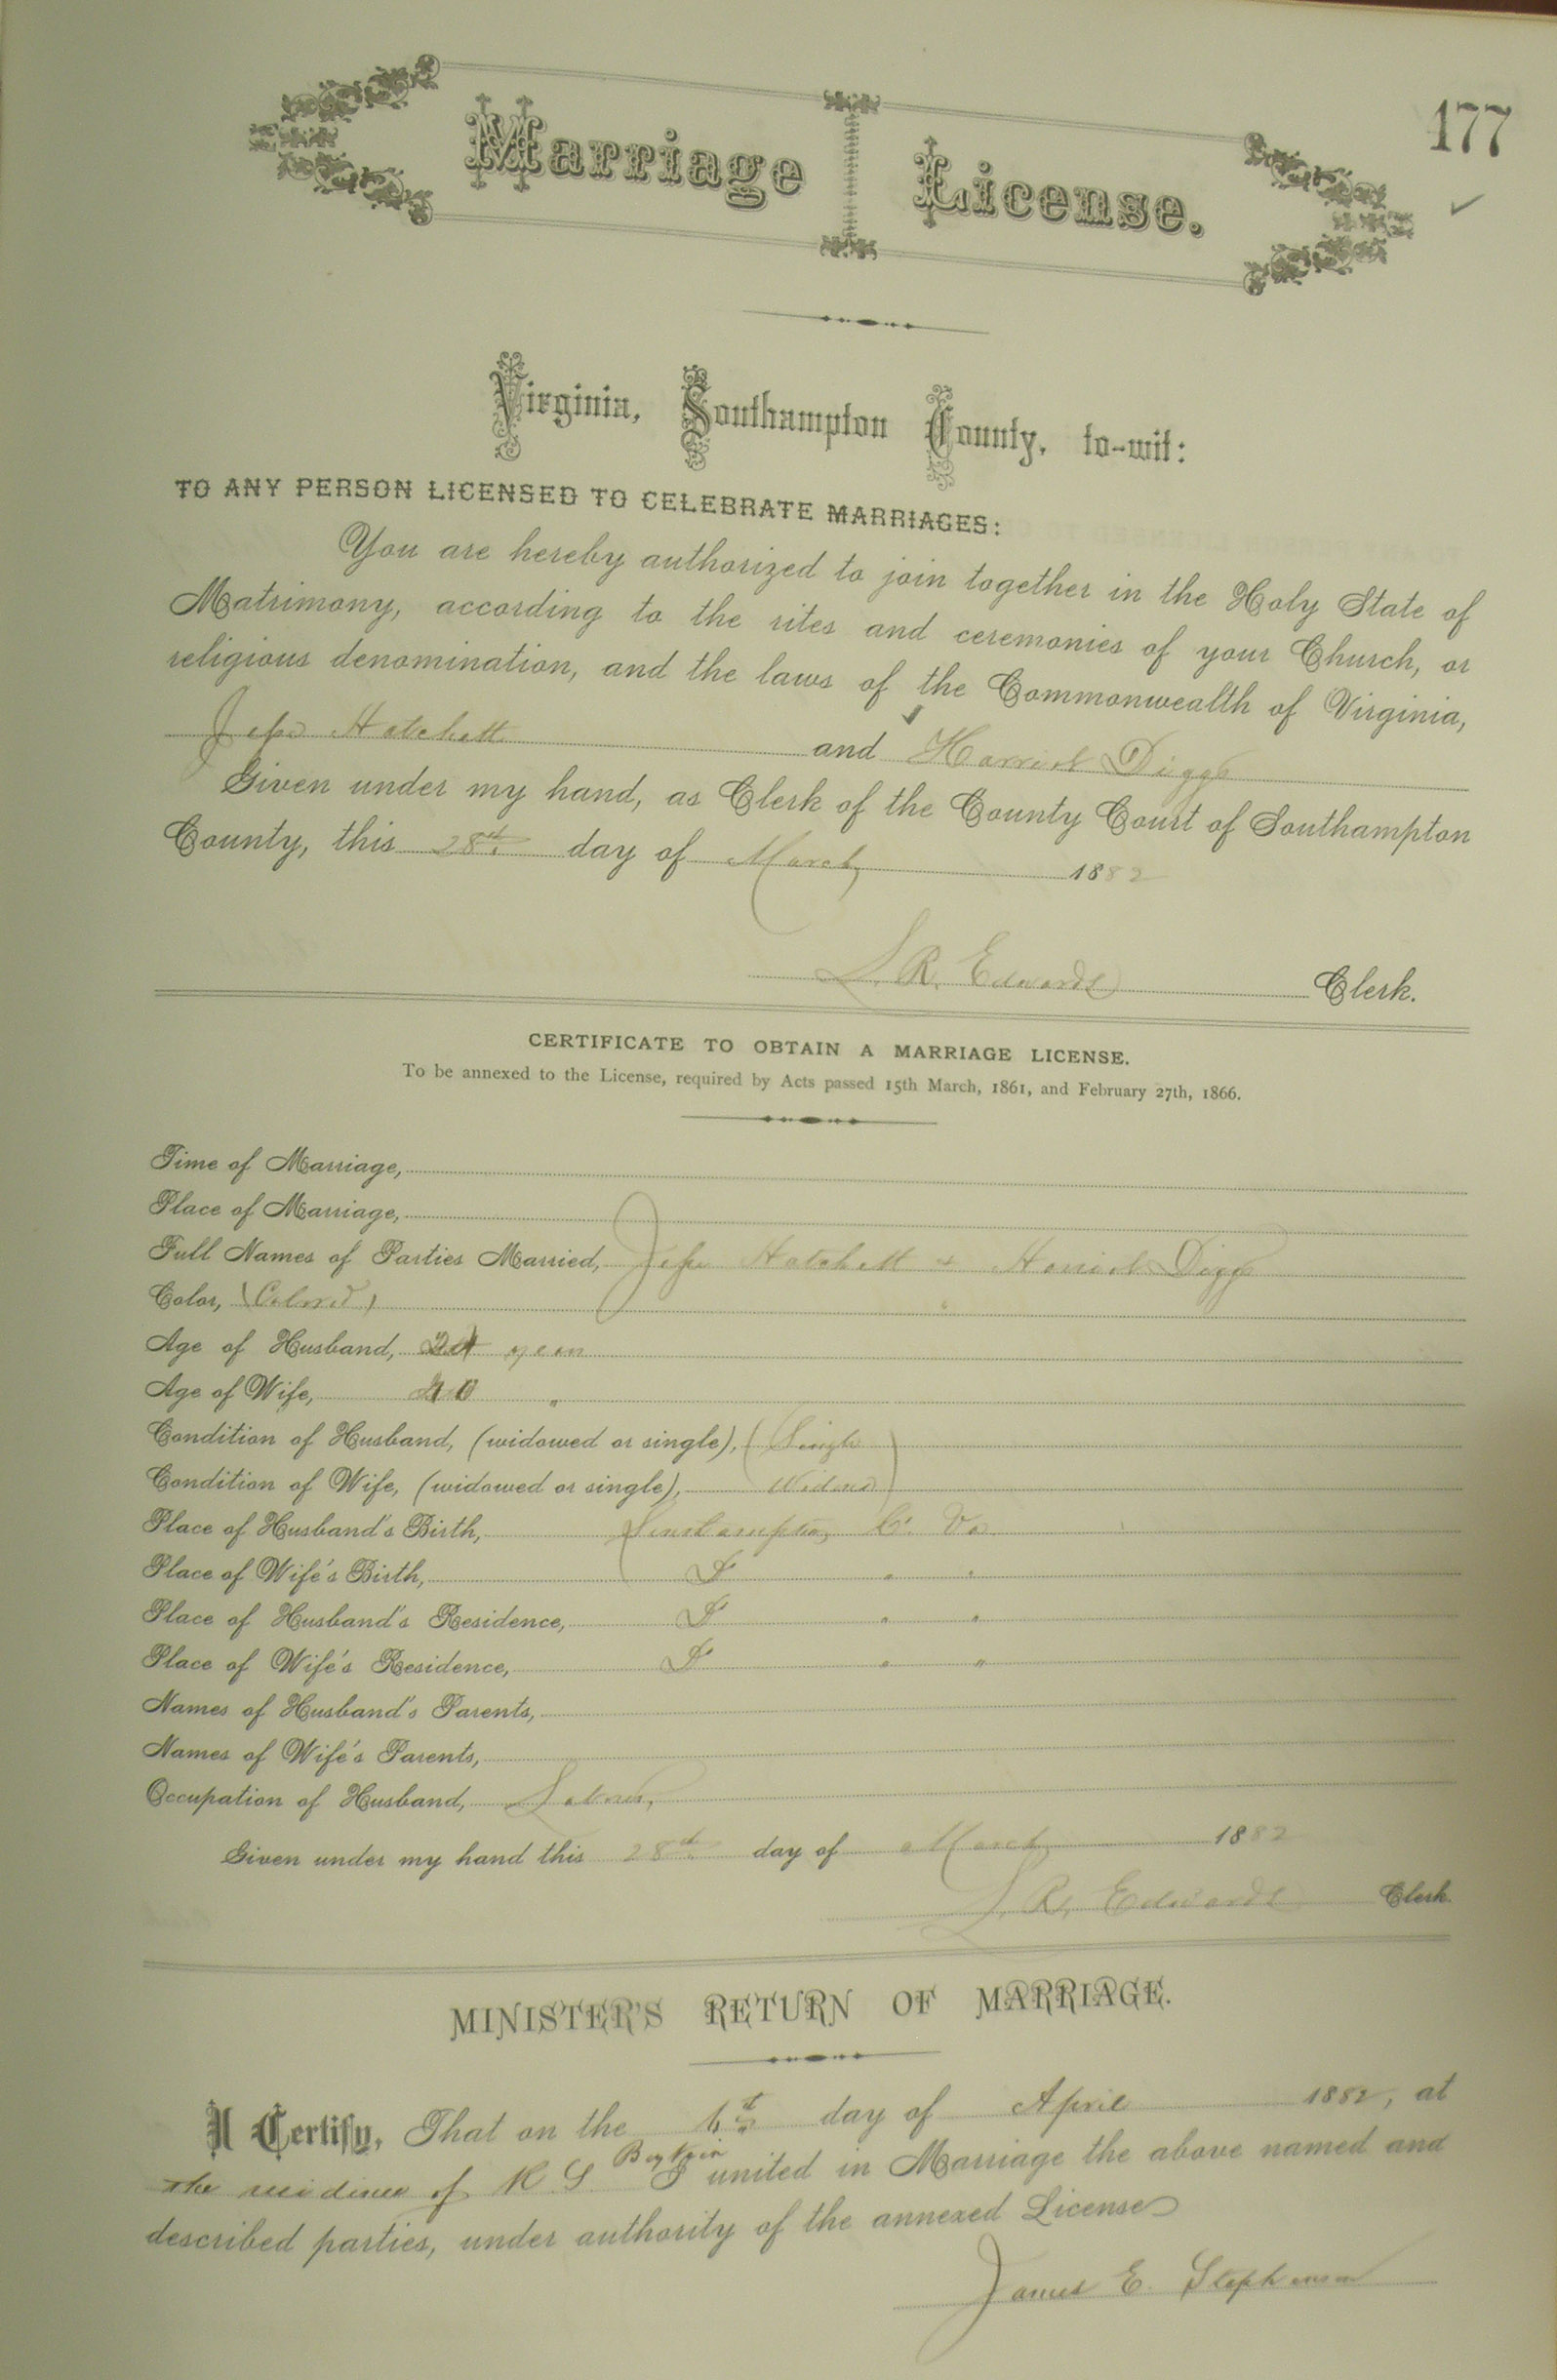 177
Marriage License.
Virginia, Southampton County, to-wit:
TO ANY PERSON LICENSED TO CELEBRATE MARRIAGES:
You are hereby authorized to join together in the Holy State of
Matrimony, according to the rites and ceremonies of your Church, or
religious denomination, and the laws of the Commonwealth of Virginia,
Hatchett and Harriet Diggs
Given under my hand, as Clerk of the County Court of Southampton
County, this 28th day of March 1882
L. R. Edwards Clerk.
CERTIFICATE TO OBTAIN A MARRIAGE LICENSE.
To be annexed to the License, required by Acts passed 15th March, 1861, and February 27th, 1866.
Time of Marriage,
Place of Marriage,
Full Names of Parties Married, Hatchett & Harriet Diggs
Color, (Colored) "
Age of Husband, years
Age of Wife, "
Condition of Husband, (widowed or single), (Single)
Condition of Wife, (widowed or single), Widow
Place of Husband's Birth, Southampton Co. Va
Place of Wife's Birth, " "
Place of Husband's Residence, " "
Place of Wife's Residence, " "
Names of Husband's Parents,
Names of Wife's Parents,
Occupation of Husband, Laborer,
Given under my hand this 28th day of March 1882
L. R. Edwards Clerk.
MINISTER'S RETURN OF MARRIAGE.
I Certify, That on the 6th day of April 1882, at
Boykin
the residence of R. S. I united in Marriage the above named and
described parties, under authority of the annexed License
James E. Stephenson